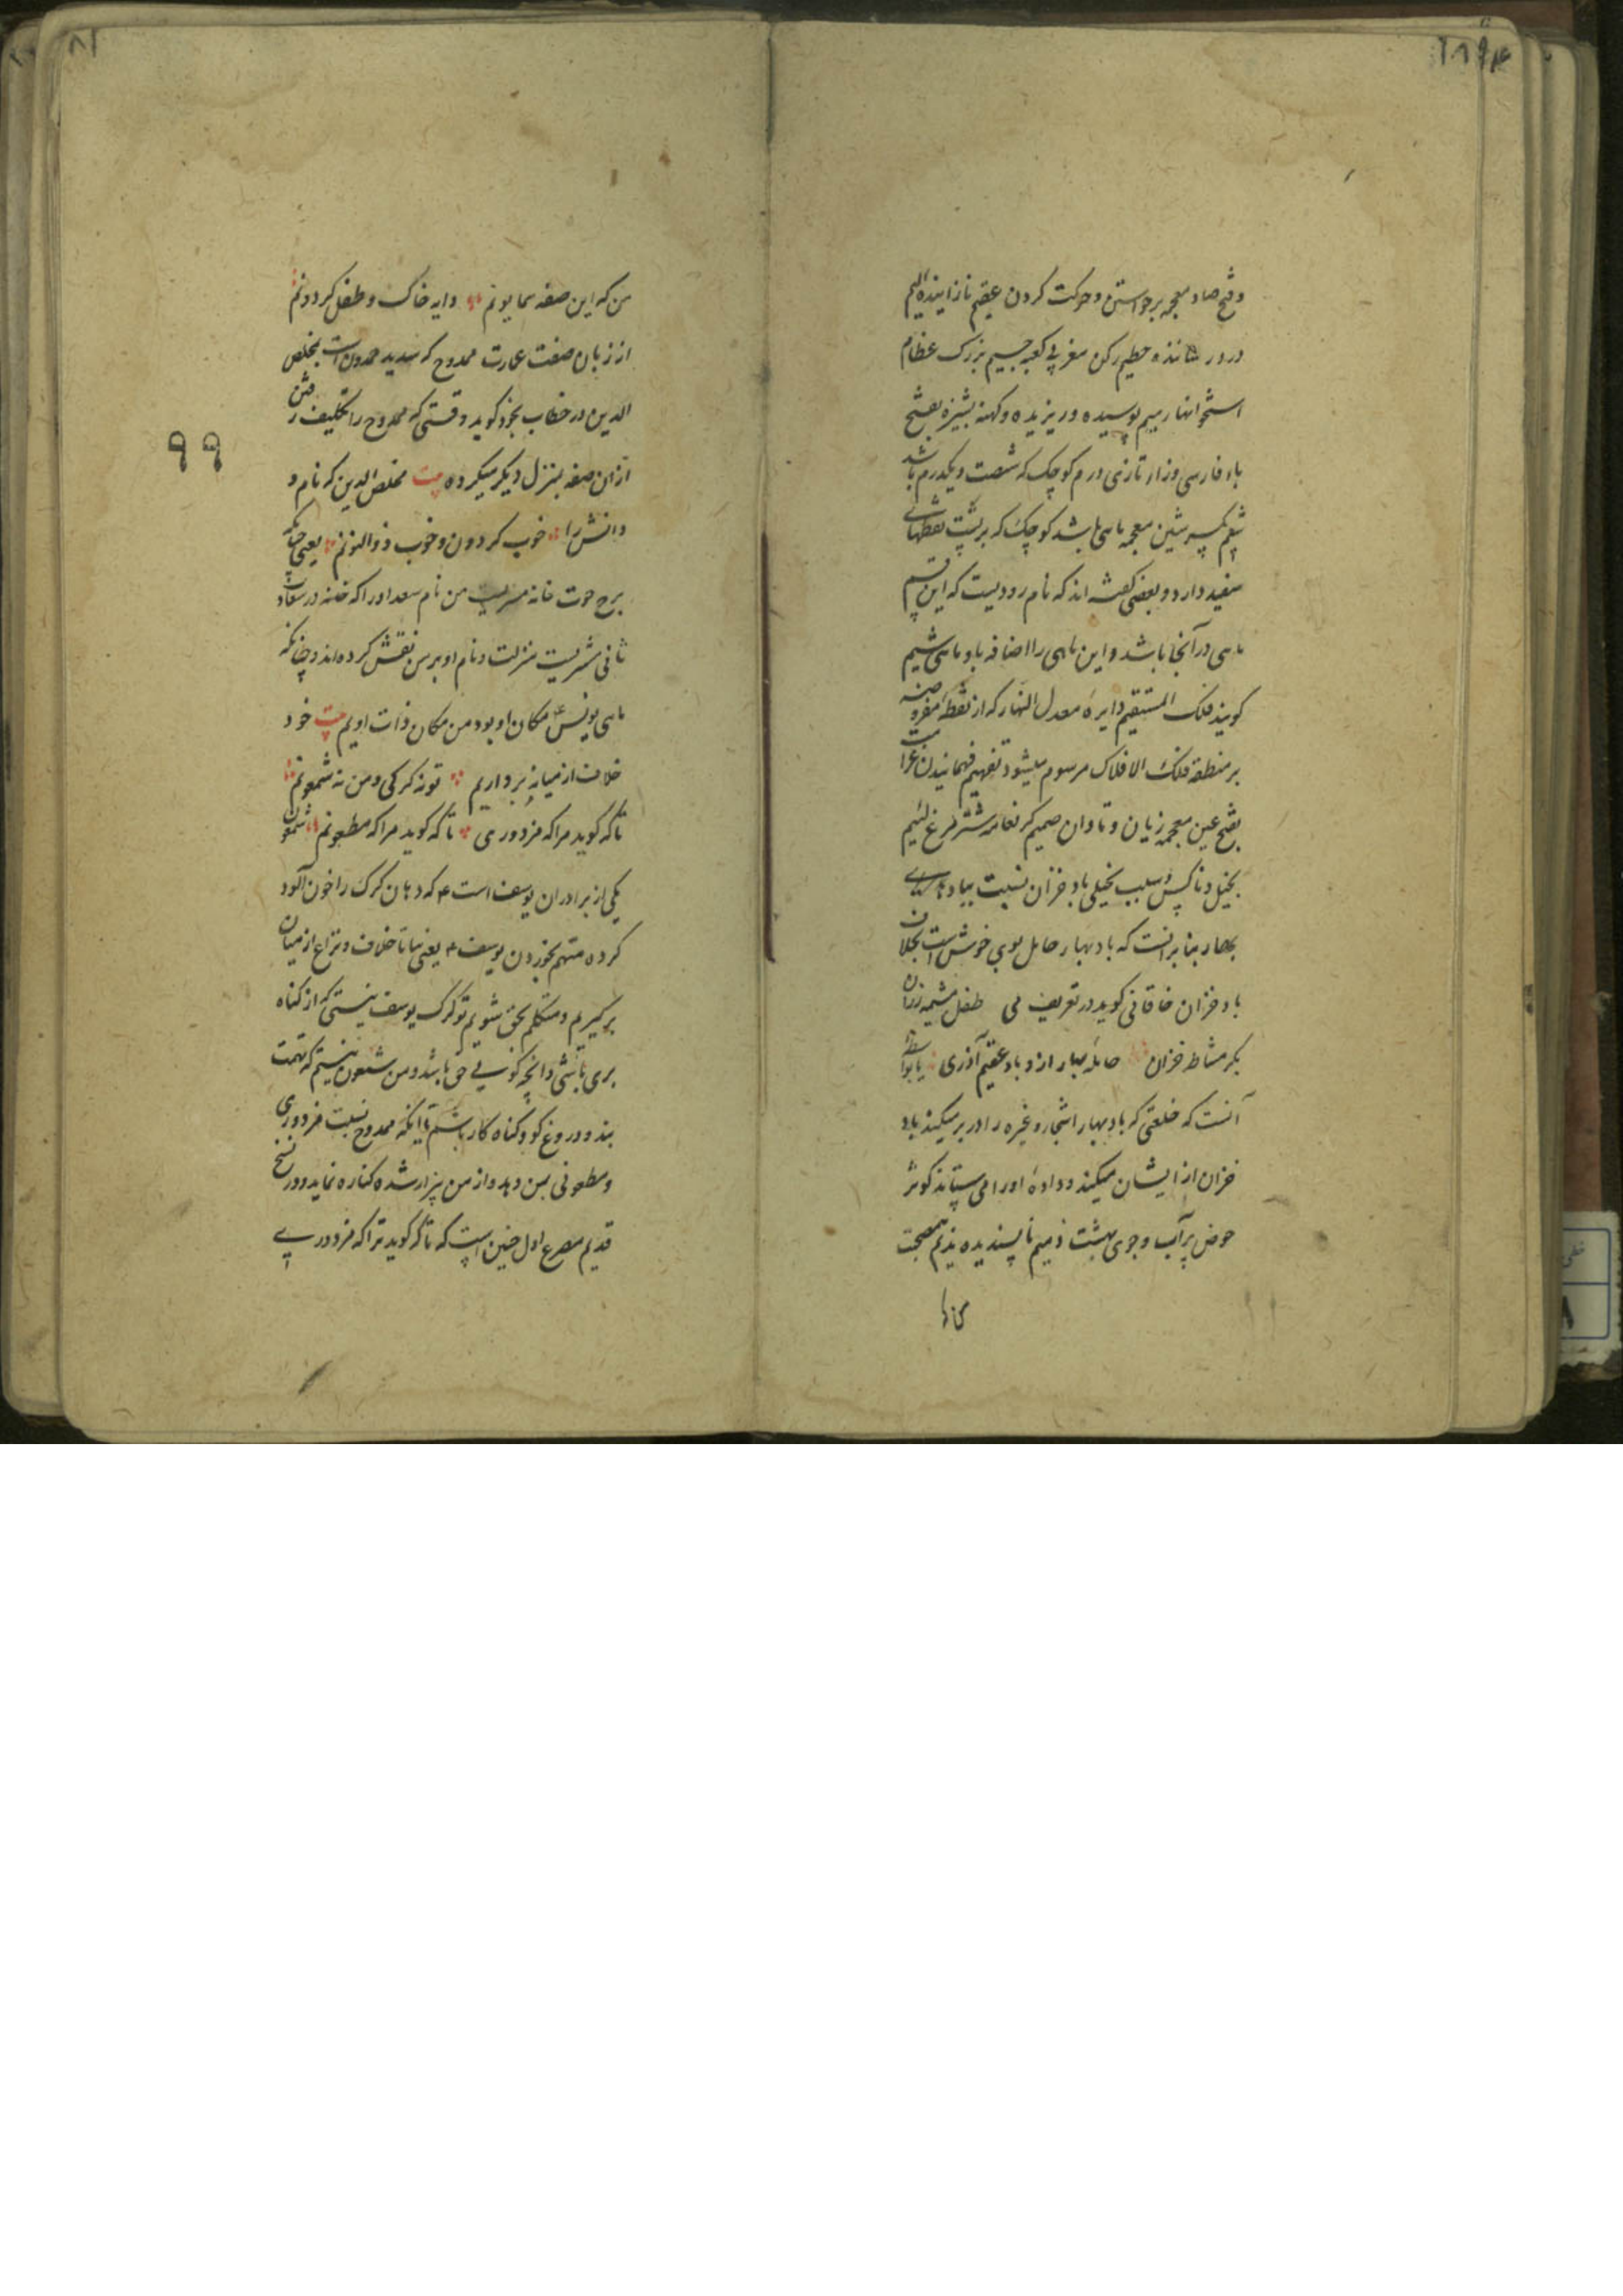 وفتح صاد معجمه برخواستن و حرکت کردن عقیم نازاینده الیم
درد رساننده حطیم رکن مغربی کعبه جسیم بزرک عظام
استخوانها رمیم پوسیده و ریزیده و کهنه بشیزه بفتح
باء فارسی وزاء تازی درم کوچک که شصت ویکدرم باشد
شیم بکسر شین معجمه ماهی باشد کوچک که بر پشت نقطهای
سفید دارد و بعضی کفته اند که نام رودیست که این قسم
ماهی در آنجا باشد و این ماهی را اضافه باو ماهی شیم
کویند فلک المستقیم دایره معدل النهار که از نقطه مفروضه
بر منطقة فلک الافلاک مرسوم میشود تفهیم فهمانیدن غرامت
بفتح عین معجمه زیان و تاوان صمیم کر نعامه شترمرغ لئیم
بخیل و ناکس و سبب بخیلی باد خزان نسبت بباد
بهار بنا بر انست که باد بهار حامل بوی خوش است بخلاف
باد خزان خاقانی کوید در تعریف می طفل مشیمه رزان
بکر مشاطه خزان حامله بهار ازو باد عقیم آذری یا بواسطه
آنست که خلعتی که باد بهار اشجار و غیره را در بر میکند باد
خزان از ایشان میکند و داده او را می ستاند کوثر
حوض پر آب و جوی بهشت ذمیم ناپسندیده ندیم همصحبت
۹۹
من که این صفه همایونم دایه خاک و طفل کردونم
از زبان صفت عمارت ممدوح که سدید حمدون است بمخلص
الدین در خطاب بخود کوید وقتی که ممدوح را تکلیف رفتن
ازان صفه بمنزل دیکر میکرده مخلص الدین که نام و
دانش را خوب کردون و خوب ذوالنونم یعنی چنانکه
برج حوت خانه مشتریست من نام سعد او را که خانه در سعادت
ثانی مشتریست منزلت و نام او بر من نقش کرده اند و چنانکه
ماهی یونس مکان او بود من مکان ذات اویم خود
خلاف از میانه برداریم تو نه کرکی و من نه شمعونم
تا که کوید مرا که مزدوری تا که کوید مرا که مطعونم شمعون
یکی از برادران یوسف است که دهان کرک را خون آلود
کرده متهم بخوردن یوسف یعنی بیا تا خلاف و نزاع از میان
برکیریم و متکلم بحق شویم تو کرک یوسف نیستی که از کناه
بری باشی و انچه کوئی حق باشد و من شمعون نیستم که تهمت
بند و دروغ کو و کناه کار باشم تا آنکه ممدوح نسبت مزدوری
و مطعونی بمن دهد و از من بیزار شده کناره نماید و در نسخ
قدیم مصرع اول چنین است که تا که کوید ترا که مزدوری